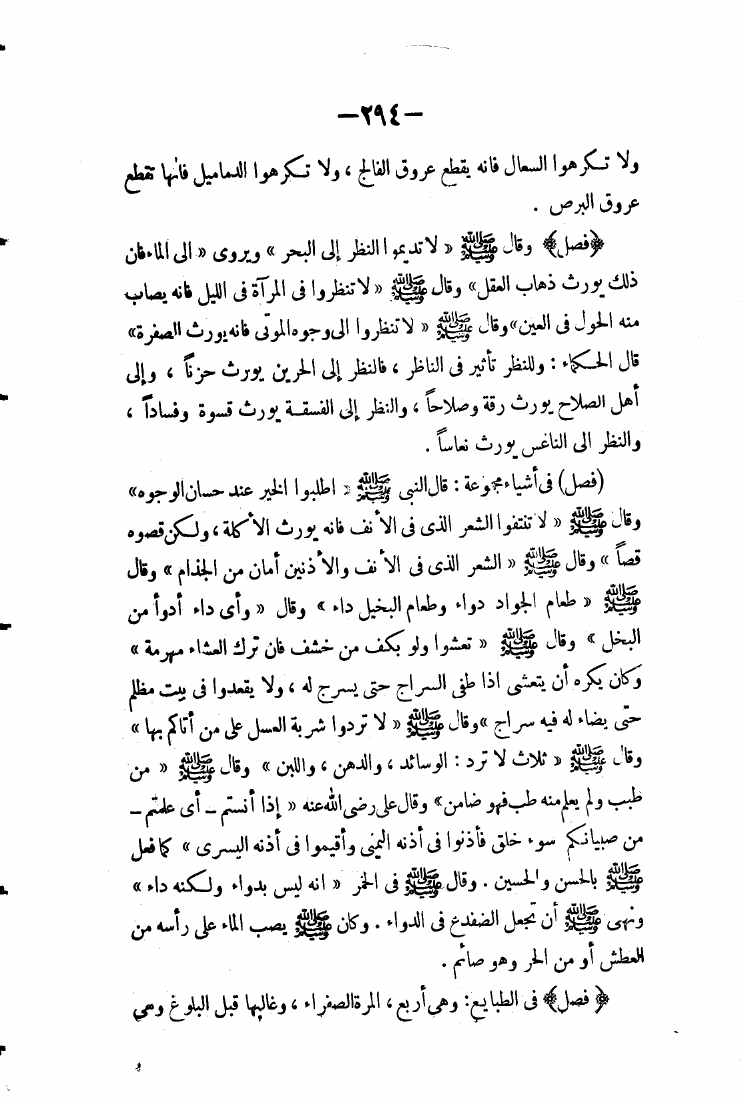 —٢٩٤—
ولا تكرهوا السعال فانه يقطع عروق الفالج ، ولا تكرهوا الدماميل فانها تقطع
عروق البرص .
﴿فصل﴾ وقال ﷺ « لا تديموا النظر إلى البحر » ويروى « الى الماء فان
ذلك يورث ذهاب العقل» وقال ﷺ « لا تنظروا فى المرآة فى الليل فانه يصاب
منه الحول فى العين» وقال ﷺ « لا تنظروا الى وجوه الموتى فانه يورث الصفرة»
قال الحكماء : وللنظر تأثير فى الناظر ، فالنظر إلى الحرين يورث حزناً ، وإلى
أهل الصلاح يورث رقة وصلاحاً ، والنظر إلى الفسقة يورث قسوة وفساداً ،
والنظر الى الناغس يورث نعاساً .
(فصل) فى أشياء مجموعة : قال النبى ﷺ « اطلبوا الخير عند حسان الوجوه»
وقال ﷺ « لا تنتفوا الشعر الذى فى الأنف فانه يورث الأكلة ، ولكن قصوه
قصاً » وقال ﷺ « الشعر الذى فى الأنف والأذنين أمان من الجذام » وقال
ﷺ « طعام الجواد دواء وطعام البخيل داء » وقال « وأى داء أدوأ من
البخل » وقال ﷺ « تعشوا ولو بكف من خشف فان ترك العشاء مهرمة »
وكان يكره أن يتعشى اذا طفى السراج حتى يسرج له ، ولا يقعدوا فى بيت مظلم
حتى يضاء له فيه سراج »وقال ﷺ « لا تردوا شربة العسل على من أتاكم بها »
وقال ﷺ « ثلاث لا ترد : الوسائد ، والدهن ، واللبن » وقال ﷺ « من
طبب ولم يعلم منه طب فهو ضامن» وقال على رضى الله عنه « إذا أنستم – أى علمتم –
من صبيانكم سوء خلق فأذنوا فى أذنه اليمنى وأقيموا فى أذنه اليسرى » كما فعل
ﷺ بالحسن والحسين . وقال ﷺ فى الخمر « انه ليس بدواء ولكنه داء »
ونهى ﷺ أن تجعل الضفدع فى الدواء . وكان ﷺ يصب الماء على رأسه من
العطش أو من الحر وهو صائم .
﴿ فصل﴾ فى الطبايع: وهى أربع ، المرة الصفراء ، وغالبها قبل البلوغ وهى